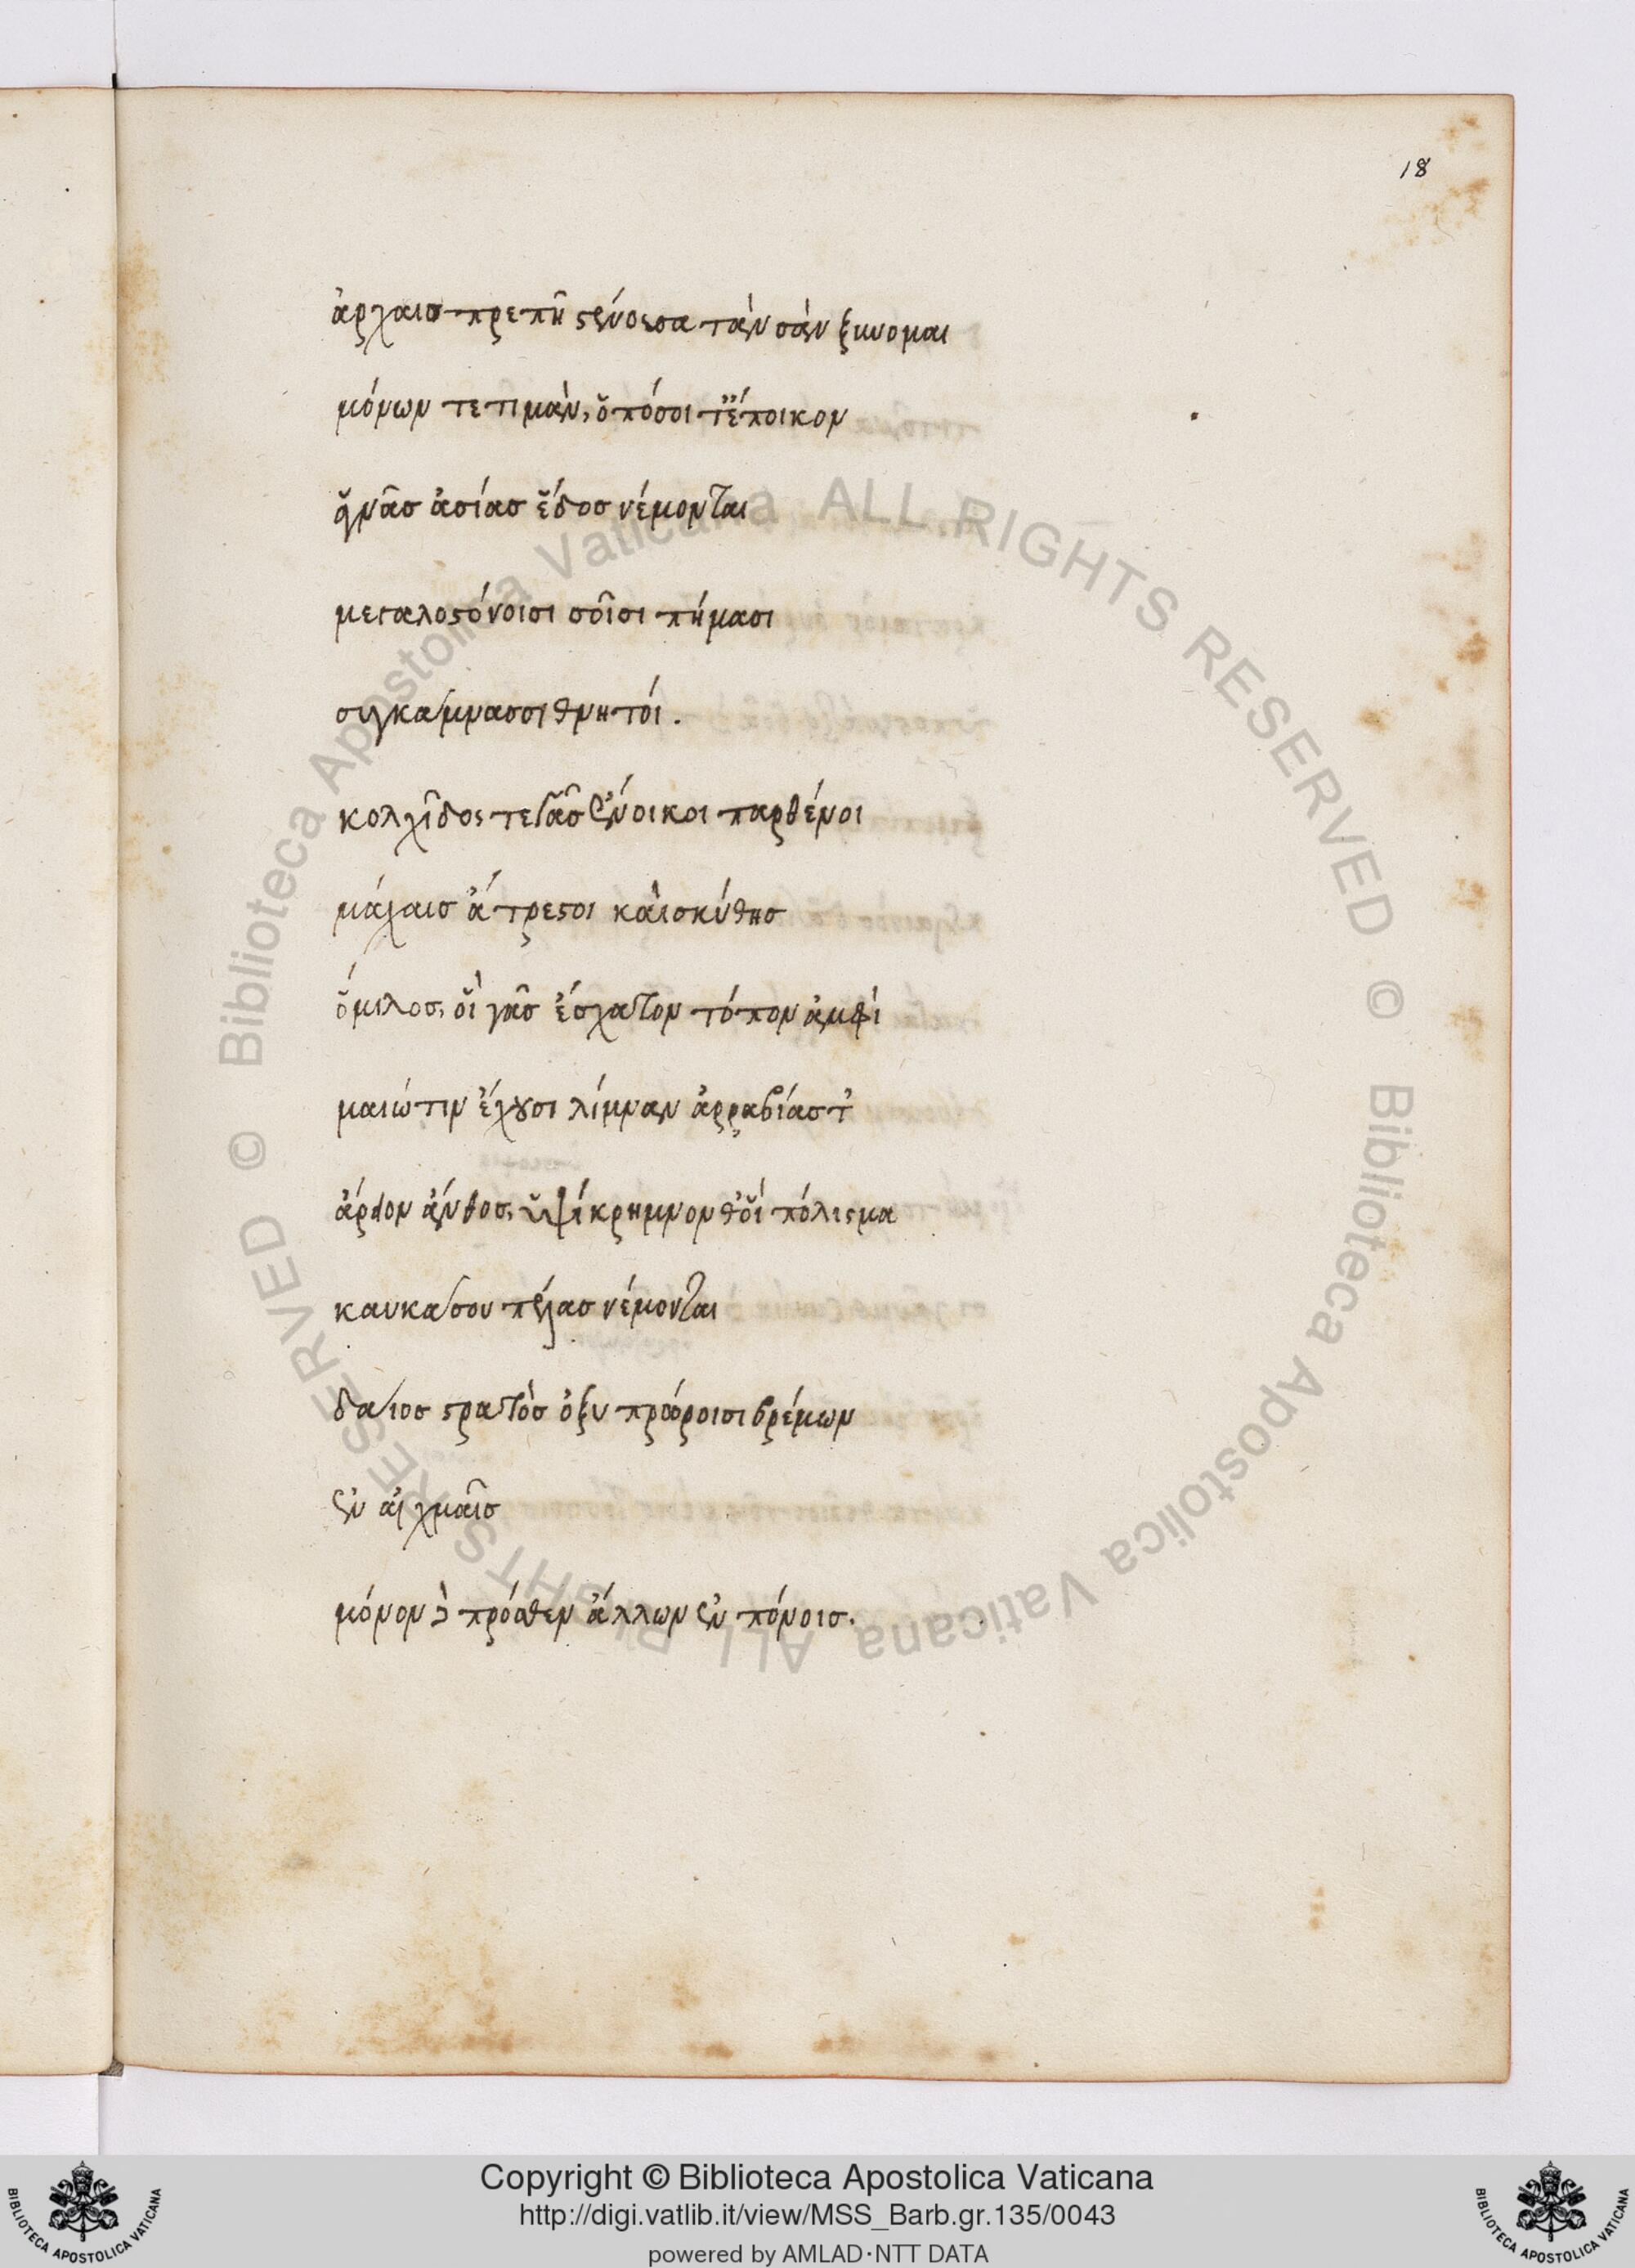 18
ἀρχαιοπρεπῆ στένουσα τὰν σὰν ξυνομαι
μόνων τε τιμὰν, ὁπόσοι τ' ἔποικον
ἁγνᾶσ ἀσίασ ἕδοσ νέμονται
μεγαλοστόνοισι σοῖσι πήμασι
συγκάμνασσι θνητοί.
κολχίδος τε γᾶσ ἔνοικοι παρθένοι
μάχαισ ἄτρεστοι καὶ σκύθησ
ὅμιλοσ, οἳ γᾶσ ἔσχατον τόπον ἀμφὶ
μαιώτιν ἔχουσι λίμναν ἀρραβίασ τ'
ἄρειον ἄνθοσ, ὑψίκρημνον θ' οἳ πόλισμα
καυκάσου πέλασ νέμονται
δάιοσ στρατὸσ ὀξυπρώροισι βρέμων
ἐν αἰχμαῖσ
μόνον δὲ πρόσθεν ἄλλων ἐν πόνοισ.
© Biblioteca Apostolica Vaticana ALL RIGHTS RESERVED
© Biblioteca Apostolica Vaticana ALL RIGHTS RESERVED
BIBLIOTECA APOSTOLICA VATICANA
Copyright © Biblioteca Apostolica Vaticana
http://digi.vatlib.it/view/MSS_Barb.gr.135/0043
powered by AMLAD·NTT DATA
BIBLIOTECA APOSTOLICA VATICANA